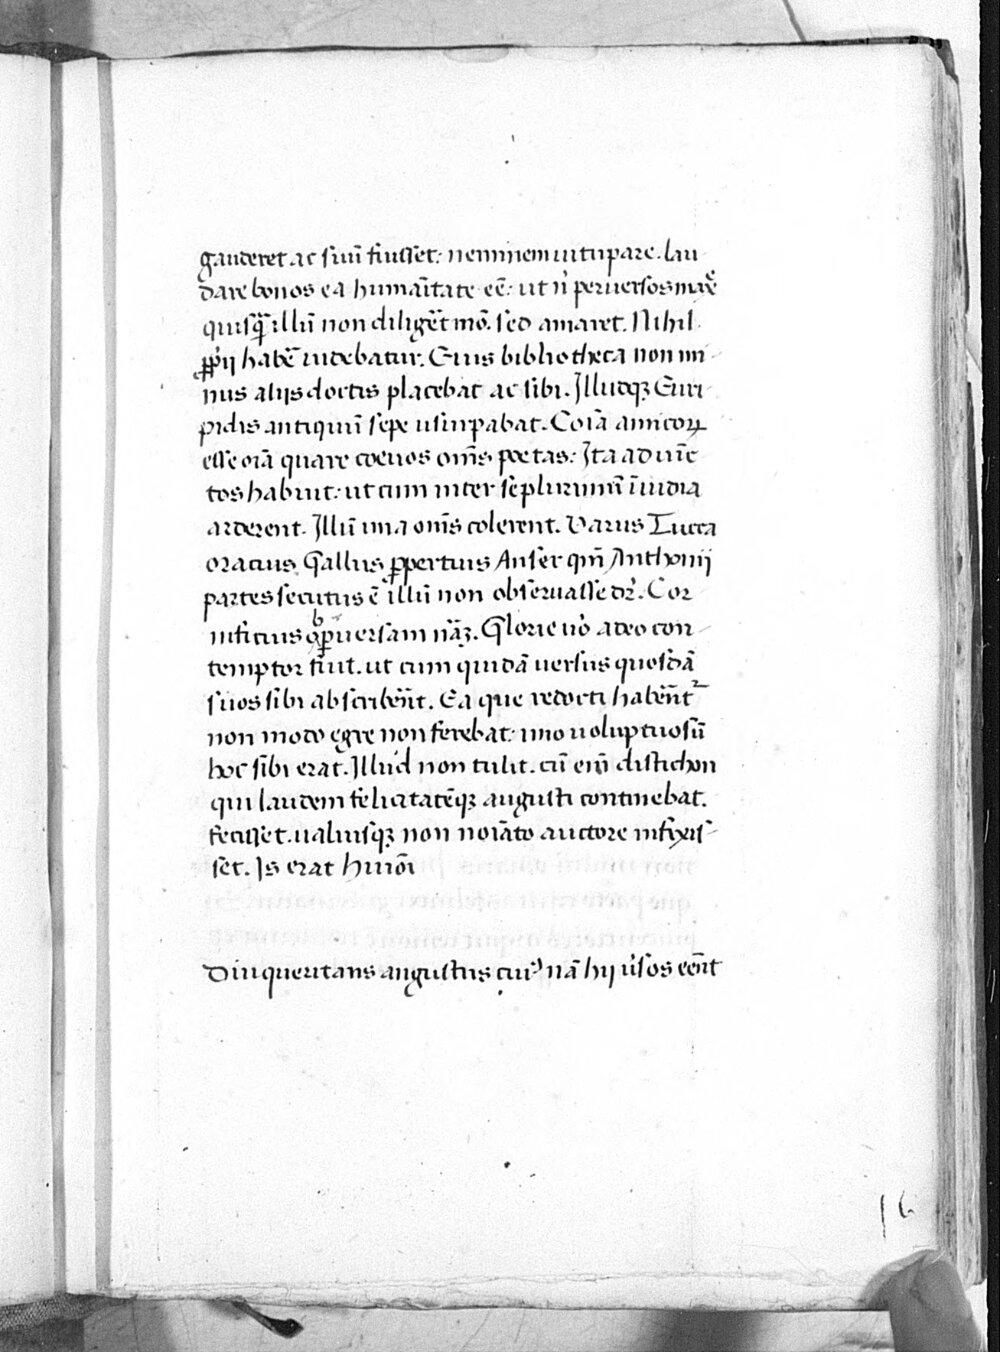 gauderet ac siuī fuisset: neminem uitupare. lau
dare bonos ea humāitate eē: ut ň peruersos maxē
quisq̄ illū non diligēt mō. sed amaret. Nihil
ꝓpij habē uidebatur. Eius bibliotheca non mi
nus alijs doctis placebat ac sibi. Illudeqꝫ Euri
pidis antiquū sepe usurpabat. Coīa amicoꝝ
esse oīa quare coeuos om̄s poetas: Ita ad uīc
tos habuit: ut cum inter se plurimū īuidia
arderent. Illū una om̄s colerent. Varus Tucca
oracius Gallus ꝓpertius Anser qm̄ Anthonij
partes secutus ē illū non obseruasse dr̄. Cor
nificius ob ꝑuersam nāꝫ. Glorie uō adeo con
temptor fuit. ut cum quidā uersus quosdā
suos sibi abscribēnt. Ea que re docti habēnt
non modo egre non ferebat: imo uoluptuosū
hoc sibi erat. Illud non tulit. cū eīm distichon
qui laudem felicitatēqꝫ augusti continebat.
fecisset. ualuisqꝫ non noīato auctore infixis
set. Is erat huiōi
Diu queritans augustus cuiꝰ nā hij ūsos eēnt
16